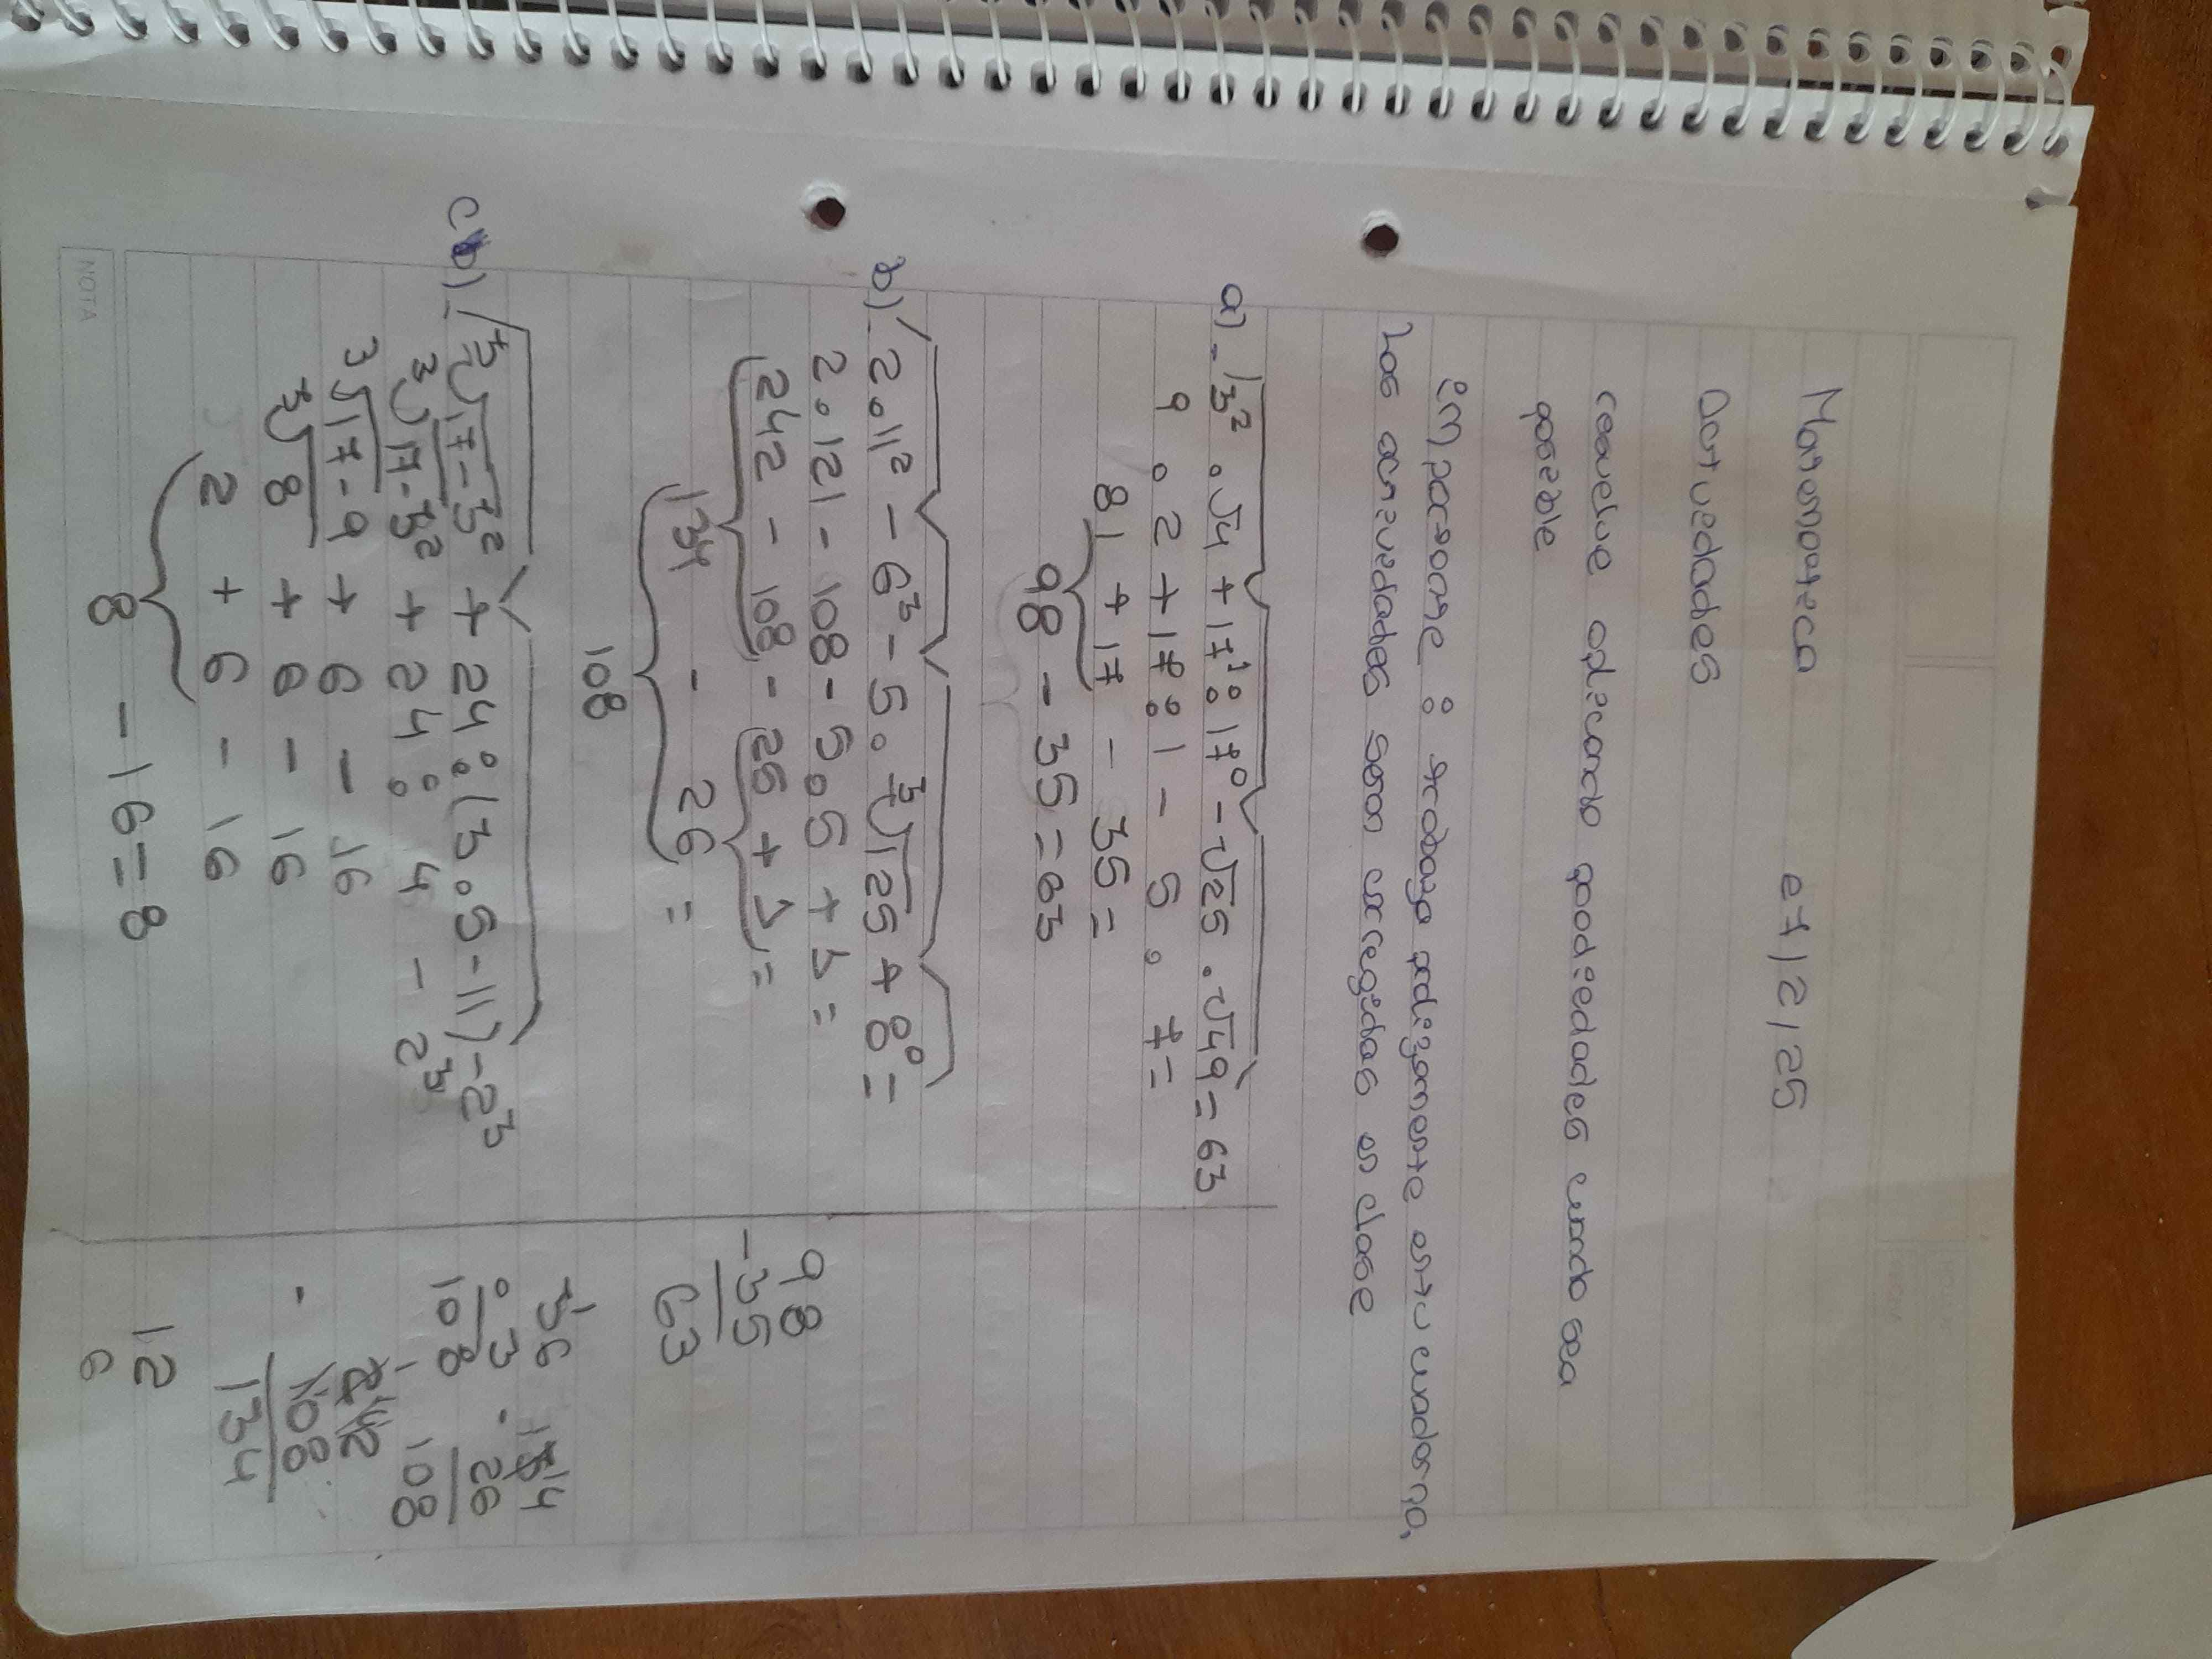 Matematica e7/2/25
Actividades
resuelve aplicando propiedades cuando sea
posible
importante: trabaja prolijamente en tu cuaderno,
las actividades seran corregidas en clase
a) - 3² . √4 + 17¹ : 17⁰ - √25 . √49 = 63
9 . 2 + 17 : 1 - 5 . 7 =
81 + 17 - 35 =
98 - 35 = 63
b) 2.11² - 6³ - 5 . ³√125 + 8⁰ =
2.121 - 108 - 5.5 + 1 =
242 - 108 - 25 + 1 =
134 - 26 =
108
c) ³√17-3² + 24 : (3.5-11) - 2³
³√17-3² + 24 : 4 - 2³
³√17-9 + 6 - 16
³√8 + 6 - 16
2 + 6 - 16
8 - 16 = 8
98
-35
63
36
.3
108
134
26
108
242
108
134
12
6
NOTA